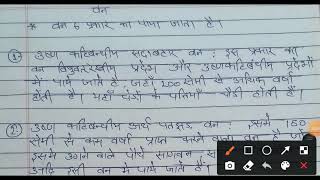 वन
* वन 5 प्रकार का पाया जाता है।
1. उष्ण कटिबंधीय सदाबहार वन : इस प्रकार का
वन विषुवतरेखीय प्रदेश और उष्णकटिबंधीय प्रदेशों
में पाये जाते हैं, जहाँ 200 सेमी से अधिक वर्षा
होती है। यहाँ पेड़ों के पत्तियाँ चौड़ी होती हैं।
2. उष्ण कटिबंधीय अर्ध पतझड़ वन : इसमें 150
सेमी से कम वर्षा प्राप्त करने वाला वन है जो
इसमें उगने वाले पौधे सागवान
आदि इसी वन में पाये जाते हैं।